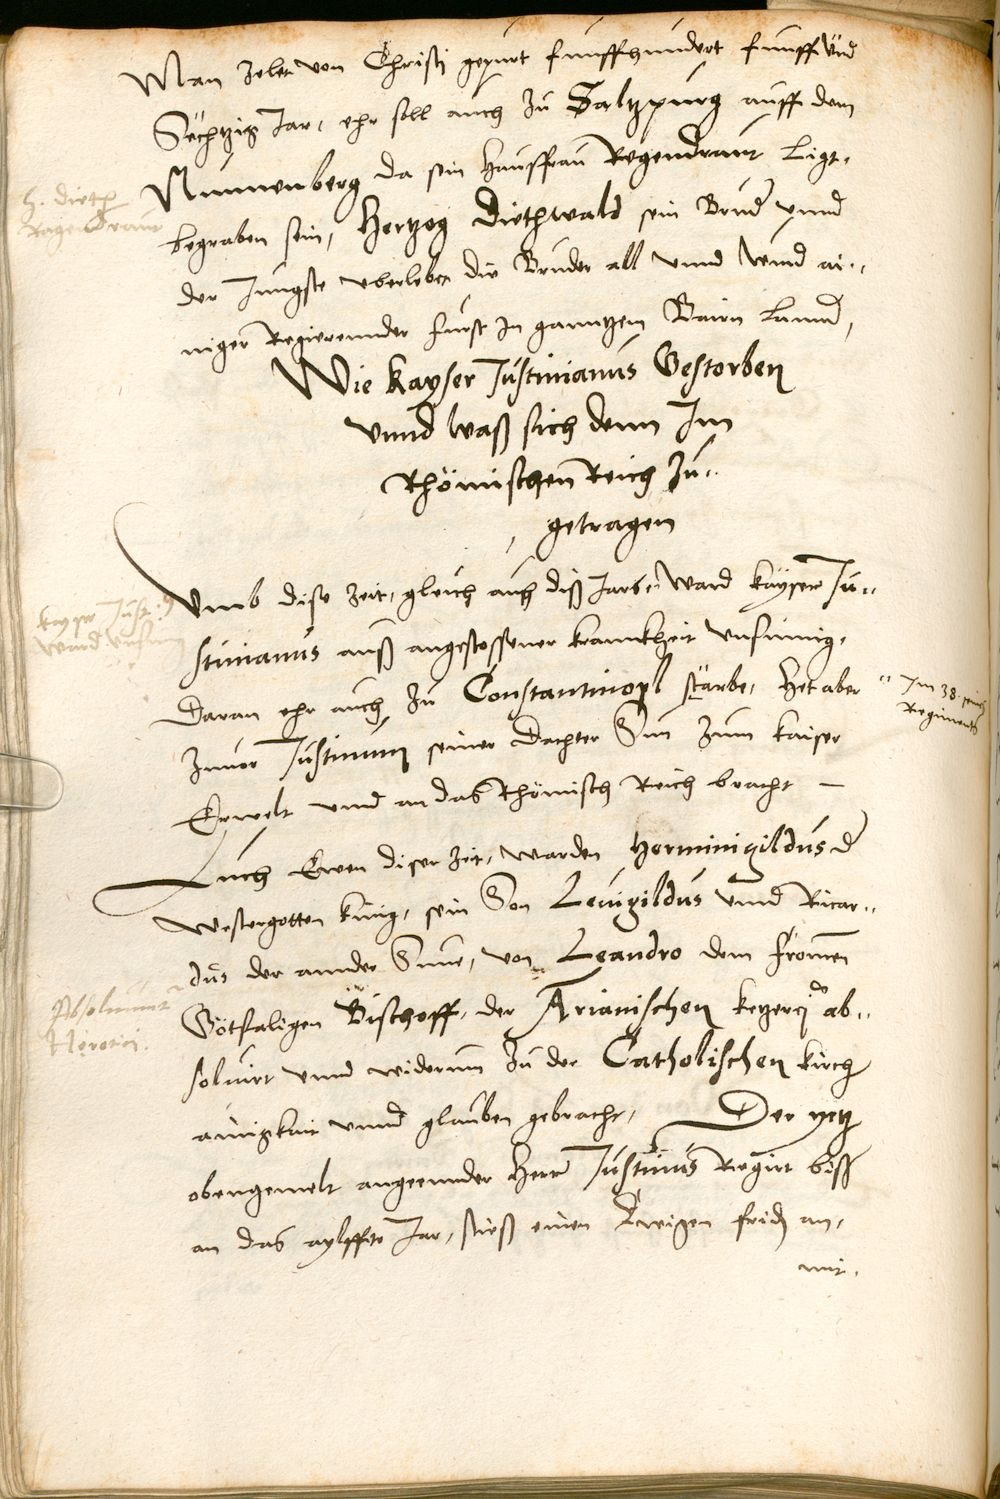 Man zelet von Christi gepurt funffhundert funff vnd
Sechtzig Jar, ehr soll auch zu Saltzpurg auff dem
Nunnenberg da sein Hausfrau Regendraut Ligt,
begraben sein, Hertzog Diethwald sein Brud vnnd
der Jungste vberlebet die Bruder all vnnd wurd ai..
niger Regierennder furst In ganntzem Bairn Lannd,
Wie kayser Justinianus Gestorben
vnnd waß sich denn Im
Rhömischen Reich zu..
getragen
Vmb dise zeit, gleich auch diß Jars, ward kayser Ju..
stinianus auß angestossener kranckheit vnsinnig,
Daran ehr auch zu Constantinopl starbe, Het aber
" Im 38. seines
Regiments
zuuor Justinum seiner Dochter Sun zum kaiser
Erwelt vnnd an das Rhömisch Reich bracht —
Auch Eben diser zeit, warden Herminigildus d
Westergotten kunig, sein Son Leuigildus vnnd Ricar..
dus der annder Sune, von Leandro dem fromen
Gotsaligen Bischoff, der Arianischen ketzerej ab..
soluirt vnnd widerum zu der Catholischen kirch
ainigkait vnnd glauben gebracht, Der yetz
obengemelt angeennder Herr Justinus Regirt biß
an das aylffte Jar, stieß einen Ewigen frid an,
mit.
H. Dieth
Regendraut
kayser Just:
ward vnsinnig
Absoluunt
Heretici.